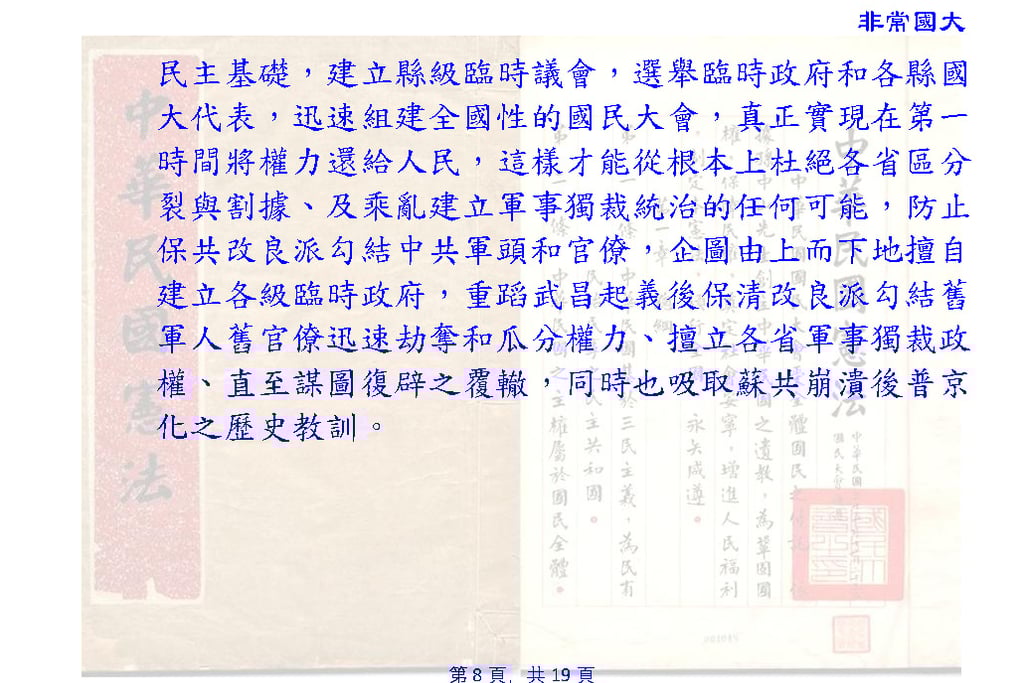 非常國大
民主基礎，建立縣級臨時議會，選舉臨時政府和各縣國
大代表，迅速組建全國性的國民大會，真正實現在第一
時間將權力還給人民，這樣才能從根本上杜絕各省區分
裂與割據、及乘亂建立軍事獨裁統治的任何可能，防止
保共改良派勾結中共軍頭和官僚，企圖由上而下地擅自
建立各級臨時政府，重蹈武昌起義後保清改良派勾結舊
軍人舊官僚迅速劫奪和瓜分權力、擅立各省軍事獨裁政
權、直至謀圖復辟之覆轍，同時也吸取蘇共崩潰後普京
化之歷史教訓。
中華民國憲法
中華民國憲法
第 8 頁，共 19 頁